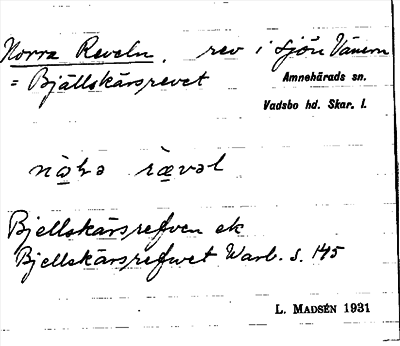 Norra Reveln, rev i sjön Vänern
= Bjällskärsrevet Amnehärads sn.
Vadsbo hd. Skar. l.
rævəl
Bjellskärsrefven ek
Bjellskärsrefwet Warb. s. 145
L. MADSÉN 1931